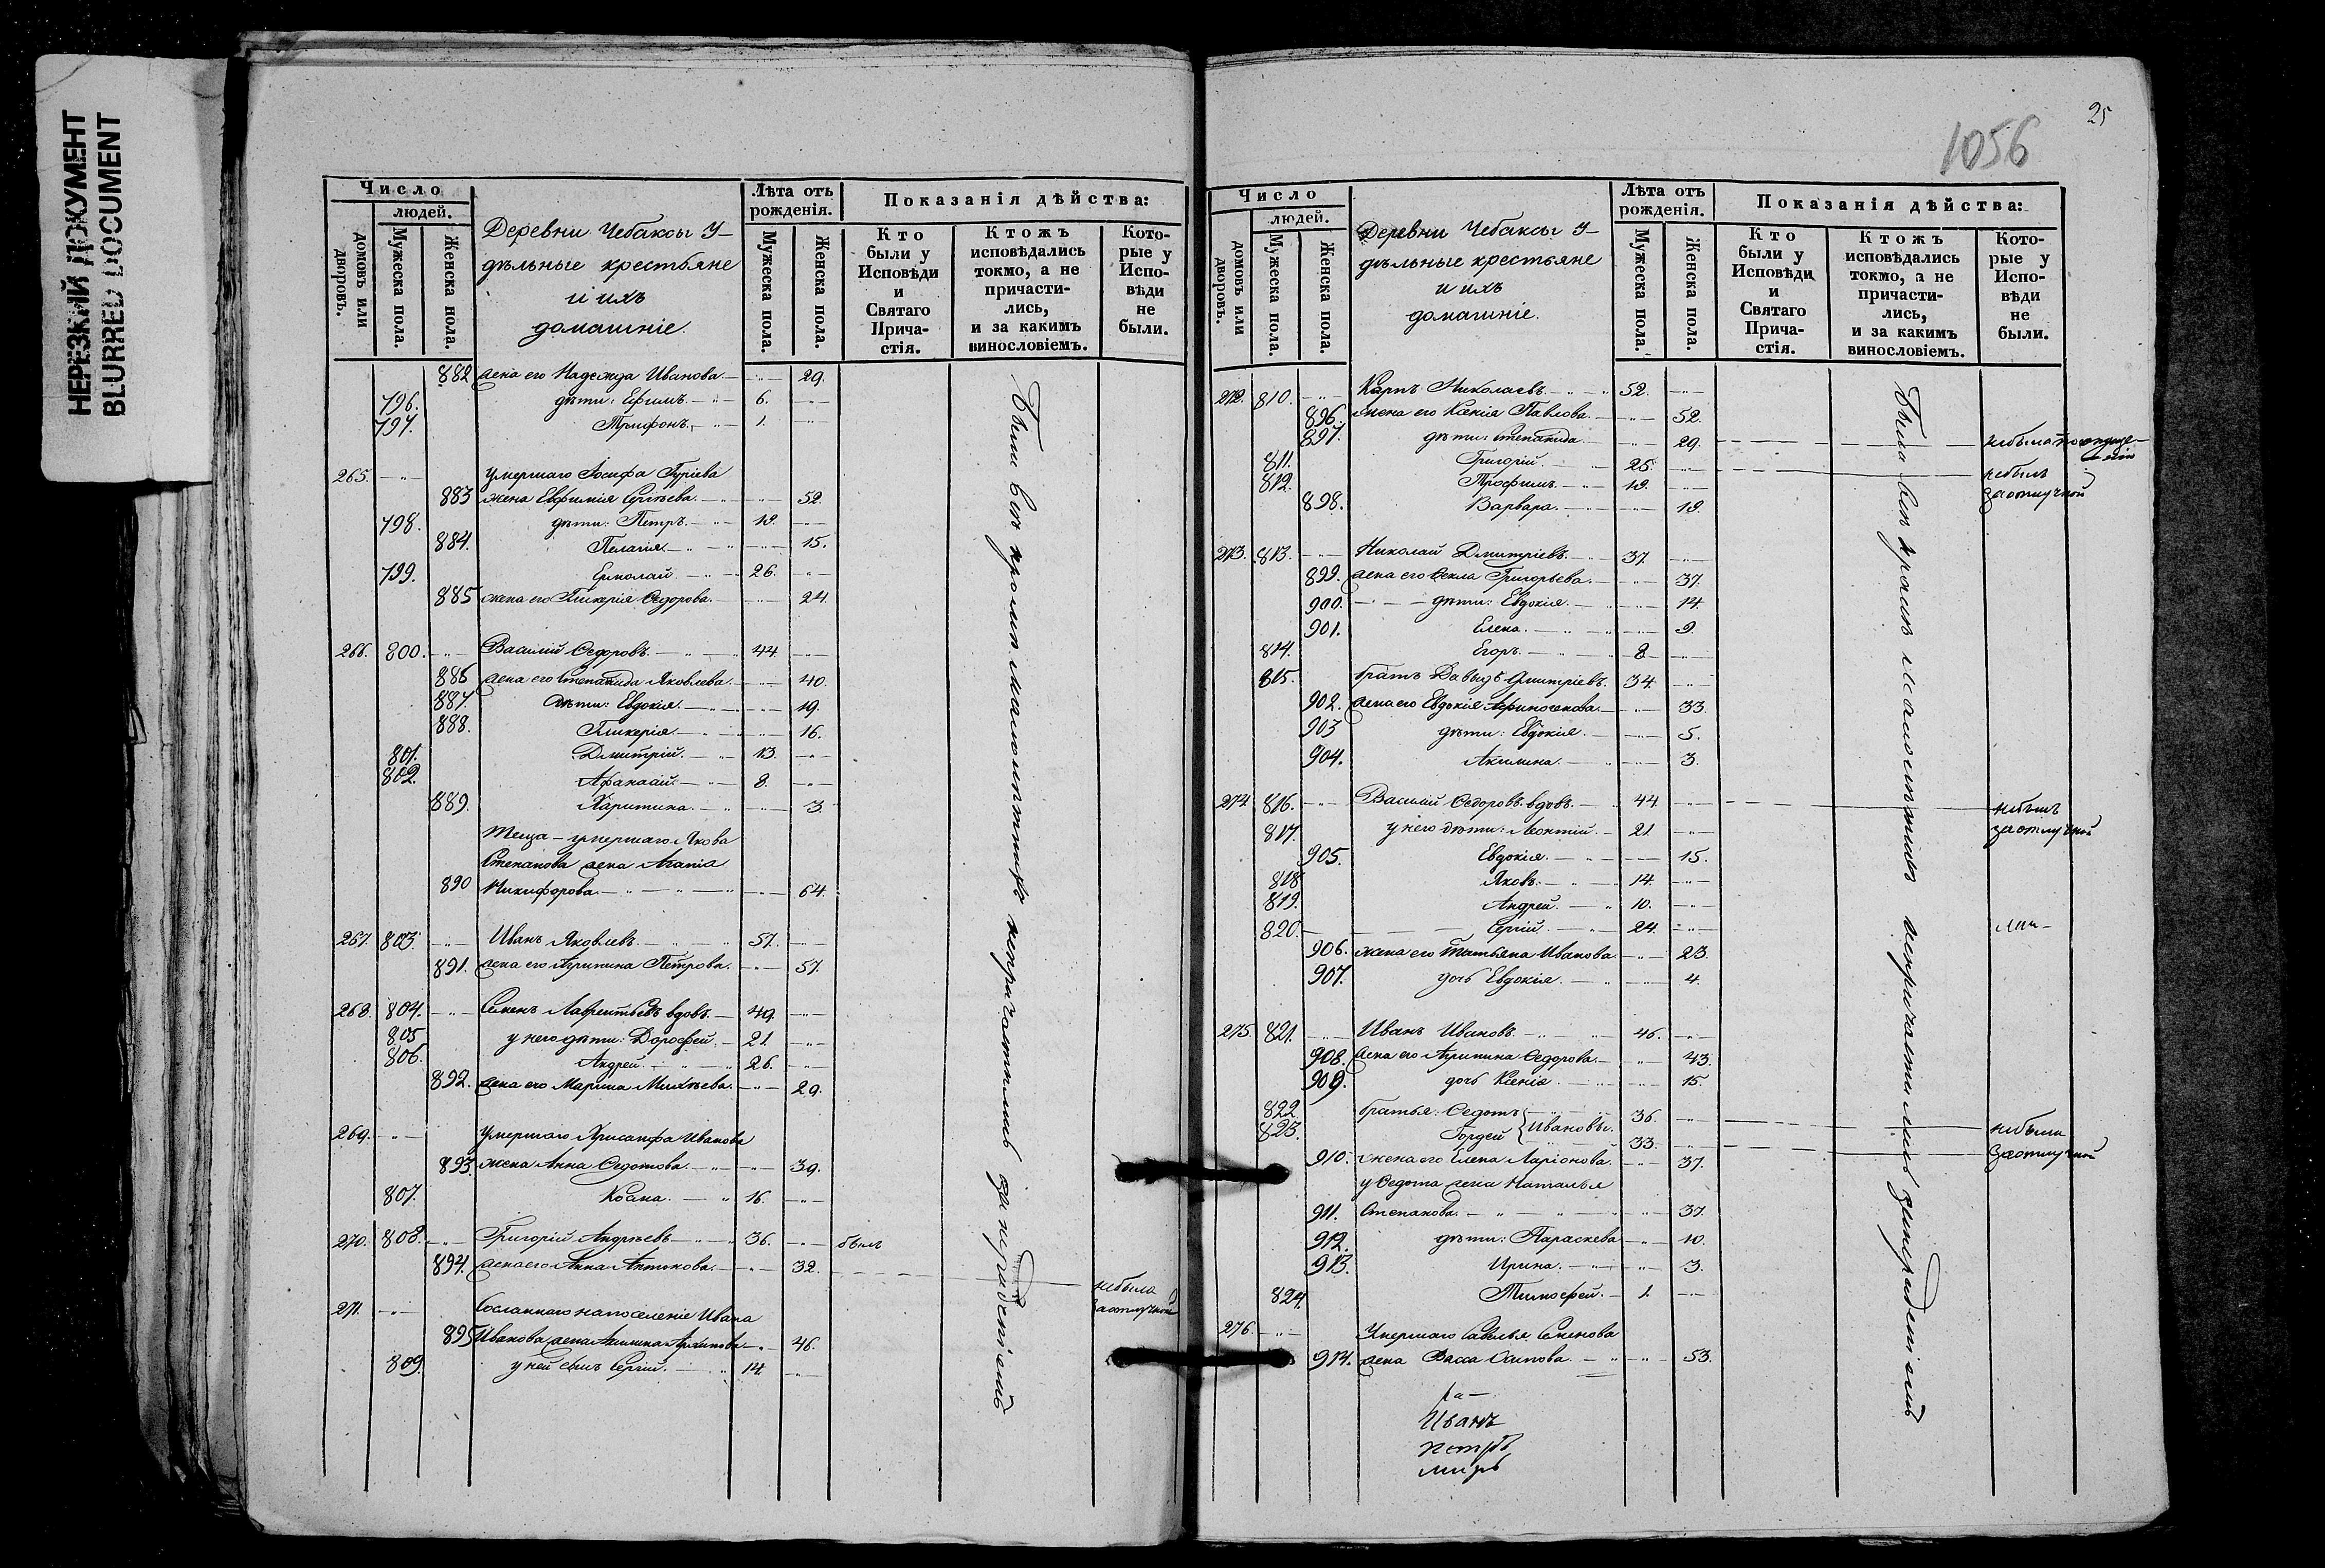 НЕРЕЗКИЙ ДОКУМЕНТ
BLURRED DOCUMENT
Число
людей.
домовъ или дворовъ.
Мужеска пола.
Женска пола.
Деревни Чебаксы У-
дѣльные крестьяне
и ихъ
домашніе.
Лѣта отъ рожденія.
Мужеска пола.
Женска пола.
Показанія дѣйства:
Кто были у Исповѣди и Святаго Прича- стія.
Ктожъ исповѣдались токмо, а не причасти- лись, и за какимъ винословіемъ.
Кото- рые у Испо- вѣди не были.
882 жена его Надежда Иванова. 29.
796. дѣти: Ефимъ. 6.
797. Трифонъ. 1.
265. умершаго Іосифа Гуріева
883 жена Евфимія Сергѣева. 52.
798. дѣти: Петръ. 18.
884. Пелагія. 15.
799. Ермолай 26.
885 жена его Гликерія Ѳедорова. 24.
266. 800. Василій Ѳедоровъ. 44.
886 жена его Степанида Яковлева. 40.
887. дѣти: Евдокія. 19.
888. Гликерія. 16.
801. Дмитрій. 13.
802. Афанасій. 8.
889. Харитина. 3.
теща – умершаго Якова
Степанова жена Агапія
890 Никифорова. 64.
267. 803. Иванъ Яковлевъ. 57.
891. жена его Агрипина Петрова. 57.
268. 804. Семенъ Лаврентьевъ вдовъ. 49.
805 у него дѣти: Дорофей. 21.
806. Андрей. 26.
892. жена его Марина Михѣева. 29.
269. умершаго Хрисанфа Иванова
893. жена Анна Ѳедотова. 39.
807. 16.
270. 808. Григорій Андреевъ 36. былъ
894. жена его Анна Антонова. 32. небыла
за отлучкой
271. Сосланнаго на поселеніе Ивана
895 Иванова жена Акилина Архипова. 46.
809. у ней сынъ Сергій. 14.
Были всѣ кромѣ малолѣтнихъ непричастились за нераденіемъ
25
1056
Число
людей.
домовъ или дворовъ.
Мужеска пола.
Женска пола.
Деревни Чебаксы У-
дѣльные крестьяне
и ихъ
домашніе.
Лѣта отъ рожденія.
Мужеска пола.
Женска пола.
Показанія дѣйства:
Кто были у Исповѣди и Святаго Прича- стія.
Ктожъ исповѣдались токмо, а не причасти- лись, и за какимъ винословіемъ.
Кото- рые у Испо- вѣди не были.
272. 810. Карпъ Николаевъ. 52.
896. жена его Ксенія Павлова. 52.
897. дѣти: Степанида. 29.
811. Григорій. 25. небылъ
812. Трофимъ. 19. за отлучкой
898. Варвара. 19.
273. 813. Николай Дмитріевъ. 37.
899. жена его Ѳекла Григорьева. 37.
900. дѣти: Евдокія. 14.
901. Елена. 9.
814. Егоръ. 8.
815. братъ Давыдъ Дмитріевъ. 34.
902. жена его Евдокія 33.
903 дѣти: Евдокія. 5.
904. Акилина. 3.
274. 816. Василій Ѳедоровъ вдовъ. 44. небылъ
817. у него дѣти: Леонтій. 21. за отлучкой
905. Евдокія. 15.
818 Яковъ. 14.
819. Андрей. 10.
820. Сергій. 24.
906. жена его Татьяна Иванова 23.
907. дочь Евдокія. 4.
275. 821. Иванъ Ивановъ. 46.
908. жена его Агрипина Ѳедорова. 43.
909. дочь Ксенія. 15.
822 братья: Ѳедотъ 36. небыли
823. Гордей Ивановы. 33. за отлучкой
910. жена его Елена Ларіонова. 37.
у Ѳедота жена Наталья
911. Степанова. 37.
912. дѣти: Параскева 10.
913. Ирина. 3.
824. Тимофей. 1.
276. Умершаго Савелья Семенова
914. жена Васса Осипова. 53.
Были всѣ кромѣ малолѣтнихъ непричастились за нераденіемъ
Иванъ
Петръ